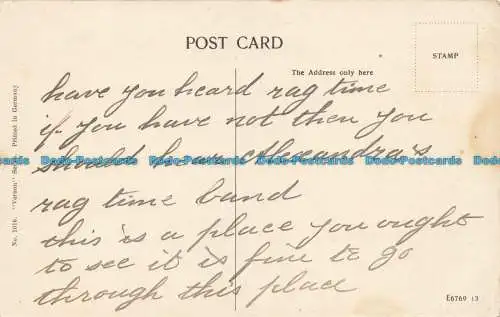 POST CARD
STAMP
The Address only here
have you heard rag time
if you have not then you
should hear Alexandra's
rag time band
this is a place you ought
to see it is fine to go
through this place
No. 1016. "Vernon" Series Printed in Germany
E6769 13
Dodo-Postcards Dodo-Postcards Dodo-Postcards Dodo-Postcards Dodo-Postcards